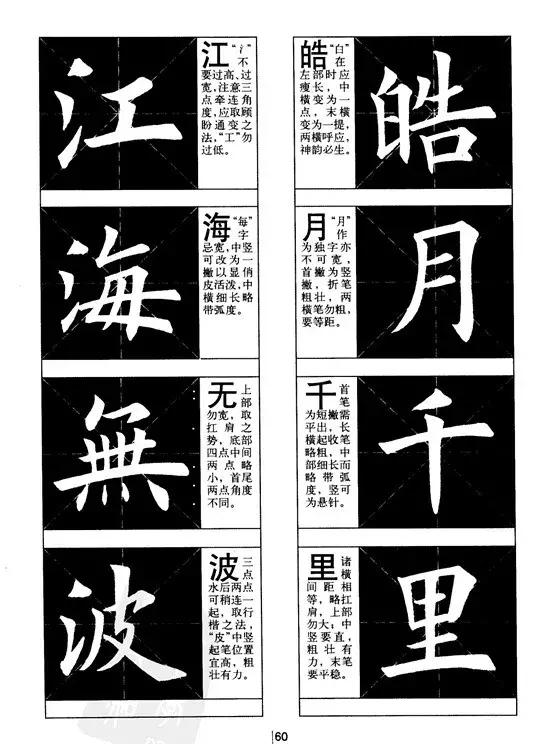 皓
皓“白”
在
左部时应
瘦长，中
横变为一
点，末横
变为一提，
两横呼应，
神韵必生。
月
月“月”
作
为独字亦
不可宽，
首撇为竖
撇，折笔
粗壮，两
横笔勿粗，
要等距。
千
千首
笔
为短撇需
平出，长
横起收笔
略粗，中
部细长而
略带弧
度，竖可
为悬针。
里
里诸
横
间距相
等，略扛
肩，上部
勿大；中
竖要直，
粗壮有
力，末笔
要平稳。
江
江“氵”
不
要过高、过
宽，注意三
点牵连角
度，应取顾
盼通变之
法，“工”勿
过低。
海
海“每”
字
忌宽，中竖
可改为一
撇以显俏
皮活泼，中
横细长略
带弧度。
無
无上
部
勿宽，取
扛肩之
势，底部
四点中间
两点略
小，首尾
两点角度
不同。
波
波三
点
水后两点
可稍连一
起，取行
楷之法，
“皮”中竖
起笔位置
宜高，粗
壮有力。
60